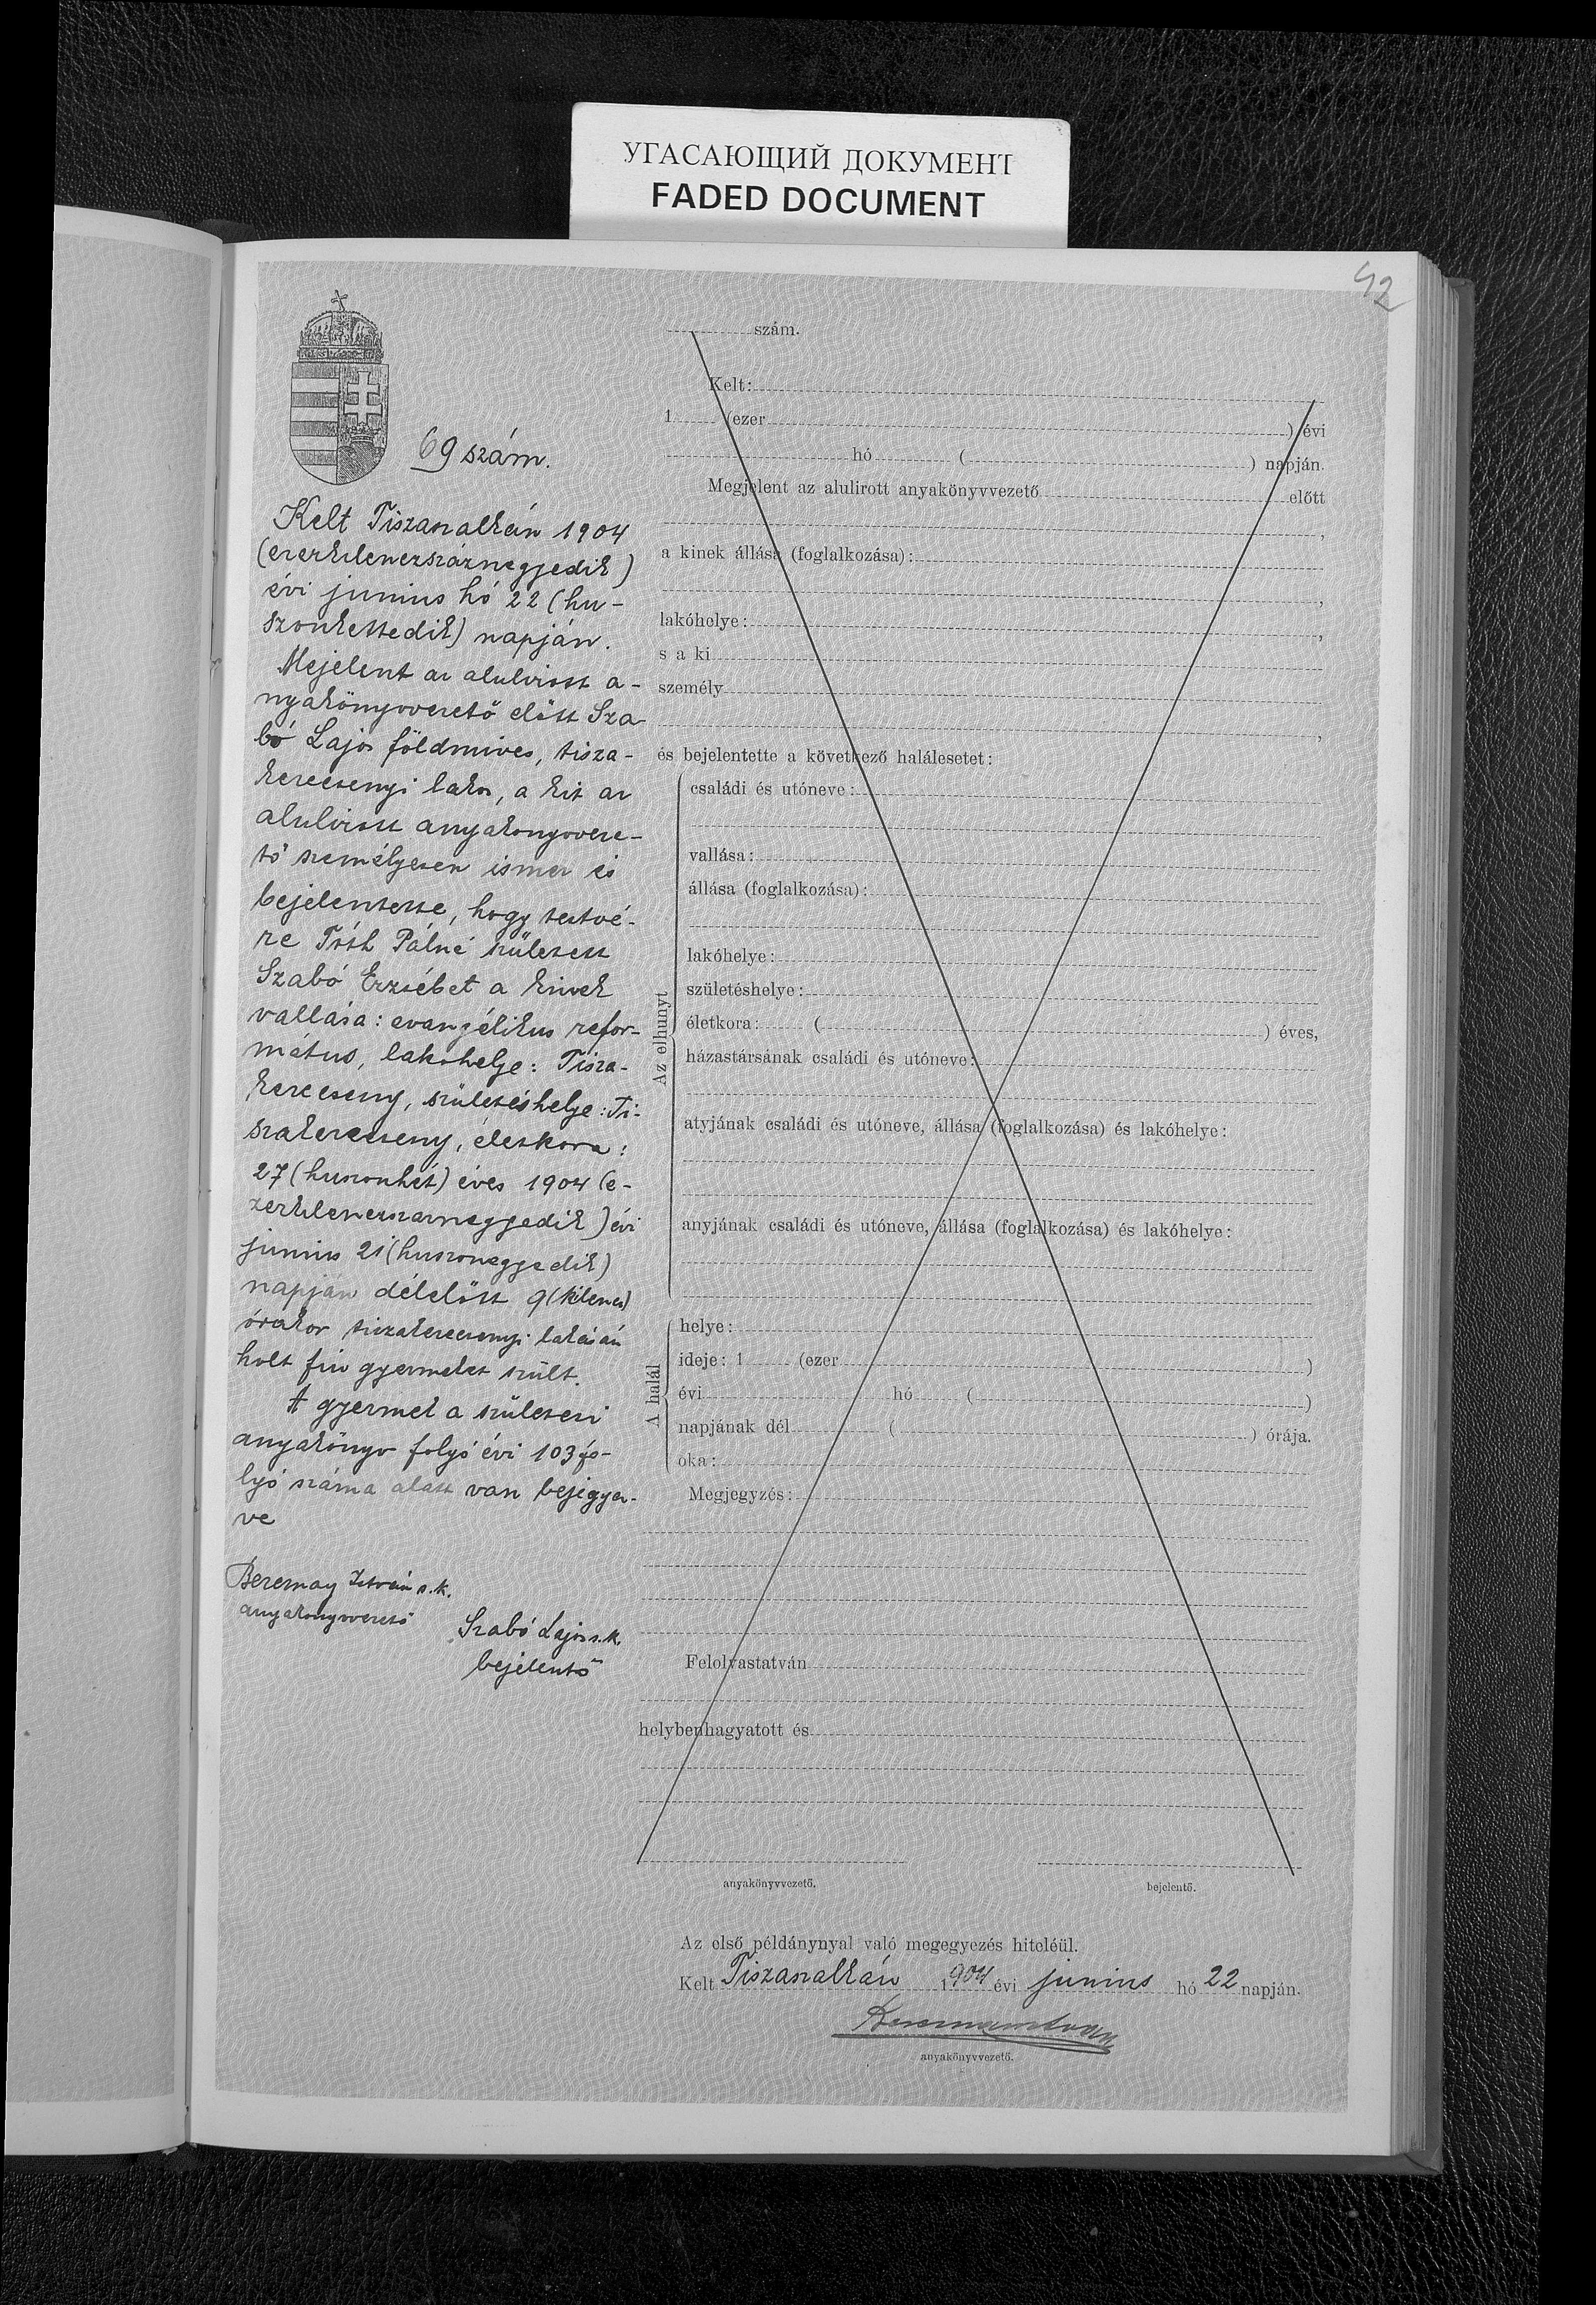 УГАСАЮЩИЙ ДОКУМЕНТ
FADED DOCUMENT
42
69 szám.
Kelt Tiszaszalkán 1904
(ezerkilencszáznegyedik)
évi junius hó 22 (hu-
szonkettedik) napján.
Mejelent az alulirott a-
nyakönyvvezető előtt Sza-
bó Lajos földmives, tisza-
kerecsenyi lakos, a kit az
alulirott anyakönyvveze-
tő személyesen ismer és
bejelentette, hogy testvé-
re Tóth Pálné született
Szabó Erzsébet a kinek
vallása: evangélikus refor-
mátus, lakóhelye: Tisza-
kerecseny, születéshelye: Ti-
szakerecseny, életkora:
27 (huszonhét) éves 1904 (e-
zerkilencszáznegyedik) évi
junius 21 (huszonegyedik)
napján délelőtt 9 (kilencz)
órakor tiszakerecsenyi lakásán
holt fiu gyermeket szült.
A gyermek a születési
anyakönyv folyó évi 103 fo-
lyó száma alatt van bejegyez-
ve
István s.k.
anyakönyvvezető
Szabó Lajos s.k.
bejelentő
szám.
Kelt:
1 (ezer ) évi
hó ( ) napján.
Megjelent az alulirott anyakönyvvezető előtt
,
a kinek állása (foglalkozása):
,
lakóhelye: ,
s a ki
személy
,
és bejelentette a következő halálesetet:
Az elhunyt
családi és utóneve:
vallása:
állása (foglalkozása):
lakóhelye:
születéshelye:
életkora: ( ) éves,
házastársának családi és utóneve:
atyjának családi és utóneve, állása (foglalkozása) és lakóhelye:
anyjának családi és utóneve, állása (foglalkozása) és lakóhelye:
A halál
helye:
ideje: 1 (ezer )
évi hó ( )
napjának dél ( ) órája.
oka:
Megjegyzés:
Felolvastatván
helybenhagyatott és
anyakönyvvezető. bejelentő.
Az első példánynyal való megegyezés hiteléül.
Kelt Tiszaszalkán 1904 évi junius hó 22 napján.
anyakönyvvezető.